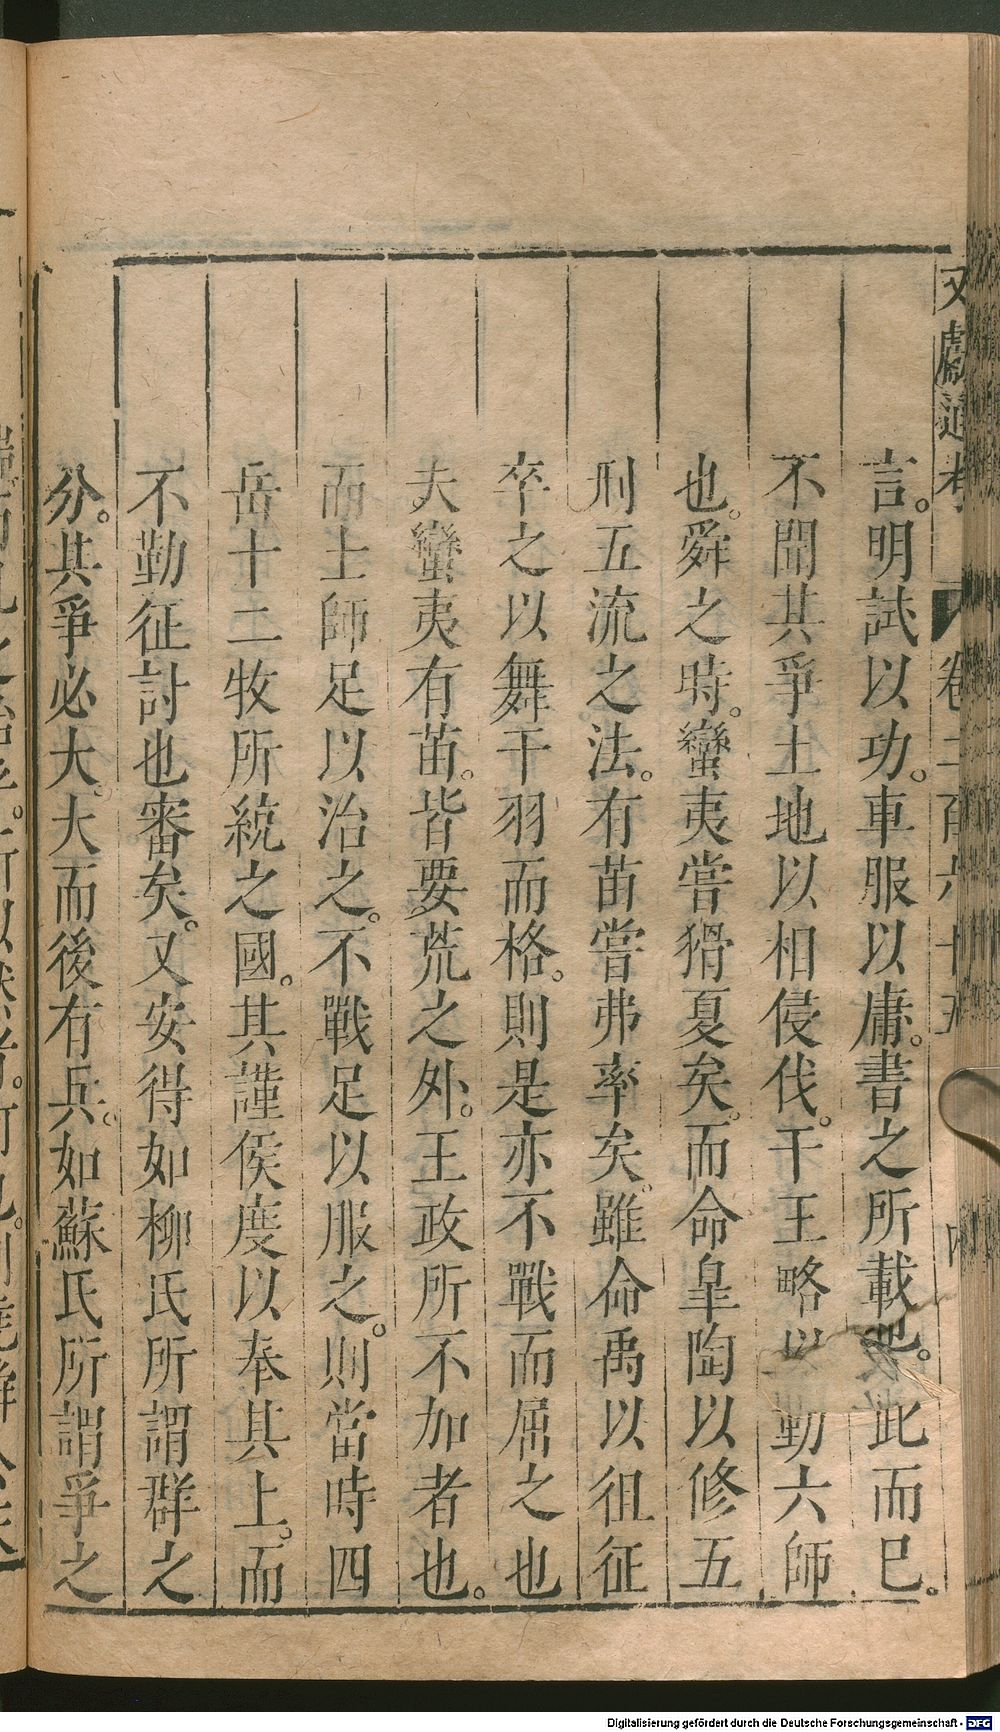 文獻通考 卷二百六十五
言。明試以功。車服以庸。書之所載此而已。
不聞其爭土地以相侵伐。干王略以勤六師
也。舜之時。蠻夷嘗猾夏矣。而命皐陶以修五
刑五流之法。有苗嘗弗率矣。雖命禹以徂征
卒之以舞干羽而格。則是亦不戰而屈之也
夫蠻夷有苗。皆要荒之外。王政所不加者也。
而士師足以治之。不戰足以服之。則當時四
岳十二牧所統之國。其謹侯度以奉其上。而
不勤征討也審矣。又安得如柳氏所謂群之
分。其爭必大。大而後有兵。如蘇氏所謂爭之
Digitalisierung gefördert durch die Deutsche Forschungsgemeinschaft - DFG